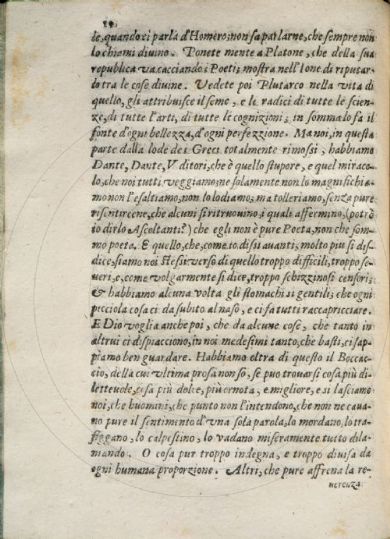 le, quando ci parla d'Homero; non sa parlarne, che sempre non
lo chiami diuino. Ponete mente a Platone, che della sua
republica va cacciando i Poeti; mostra nell'Ione di riputar-
lo tra le cose diuine. Vedete poi Plutarco nella vita di
quello, gli attribuisce il seme, e le radici di tutte le scien-
ze, di tutte l'arti, di tutte le cognizioni; in somma lo fa il
fonte d'ogni bellezza, d'ogni perfezzione. Ma noi, in questa
parte dalla lode de i Greci totalmente rimossi, habbiamo
Dante, Dante, Vditori, che è quello stupore, e quel miraco-
lo, che noi tutti veggiamo; ne solamente non lo magnifichia-
mo non l'esaltiamo, non lo lodiamo; ma tolleriamo, senza pure
risentircene, che alcuni si ritruouino, i quali affermino, (potrò
io dirlo Ascoltanti?) che egli non è pure Poeta, non che som-
mo poeta. E quello, che, come io dissi auanti, molto piu si dis-
dice, siamo noi stessi verso di quello troppo difficili, troppo se-
ueri, e, come volgarmente si dice, troppo schizzinosi censori;
& habbiamo alcuna volta gli stomachi si gentili; che ogni
picciola cosa ci da subito al naso, e ci fa tutti raccapricciare.
E Dio voglia anche poi, che da alcune cose, che tanto in
altrui ci dispiacciono, in noi medesimi tanto, che basti, ci sap-
piamo ben guardare. Habbiamo oltra di questo il Boccac-
cio, della cui vltima prosa non so, se puo trouarsi cosa più di-
letteuole, cosa più dolce, più ornata, e migliore, e si lasciamo
noi, che huomini, che punto non l'intendono, che non ne caua-
no pure il sentimento d'vna sola parola, lo mordano, lo tra-
figgano, lo calpestino, lo vadano miseramente tutto dila-
niando. O cosa pur troppo indegna, e troppo diuisa da
ogni humana proporzione. Altri, che pure affrena la re-
uerenza